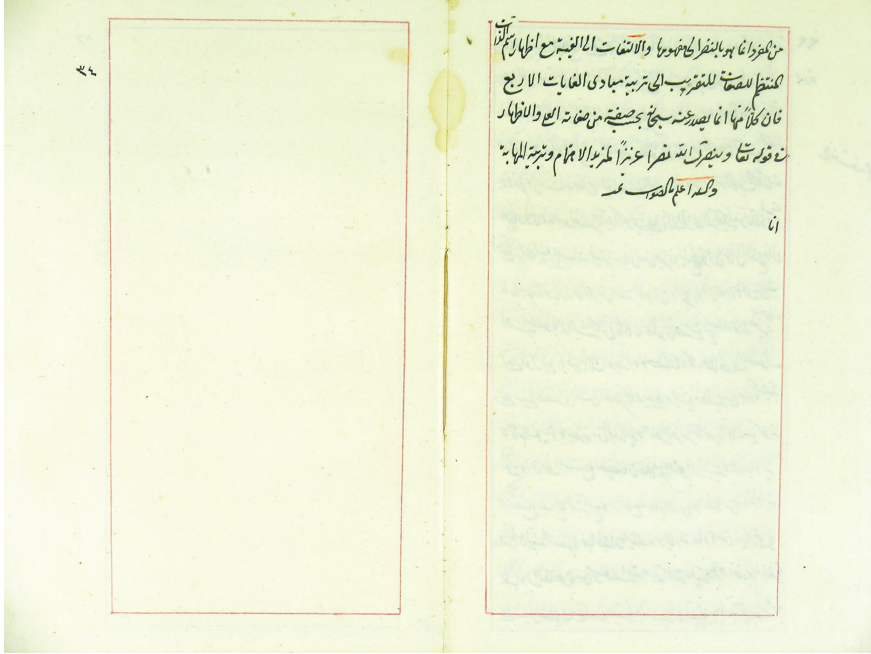 من المفرد انما هو بالنظر الى مفهومها والالتفات الى الغيبة مع اظهار اسم الذات
المنتظم للصفات للتقريب الى تربية مبادى الغايات الاربع
فان كلاً منها انما يصدر عنه سبحانه بحسب صفة من صفاته العلى والاظهار
فى قوله تعالى وينصرك الله نصرا عزيزاً لمزيد الاهتمام وتربية المهابة
والله اعلم بالصواب
انا
٣٤